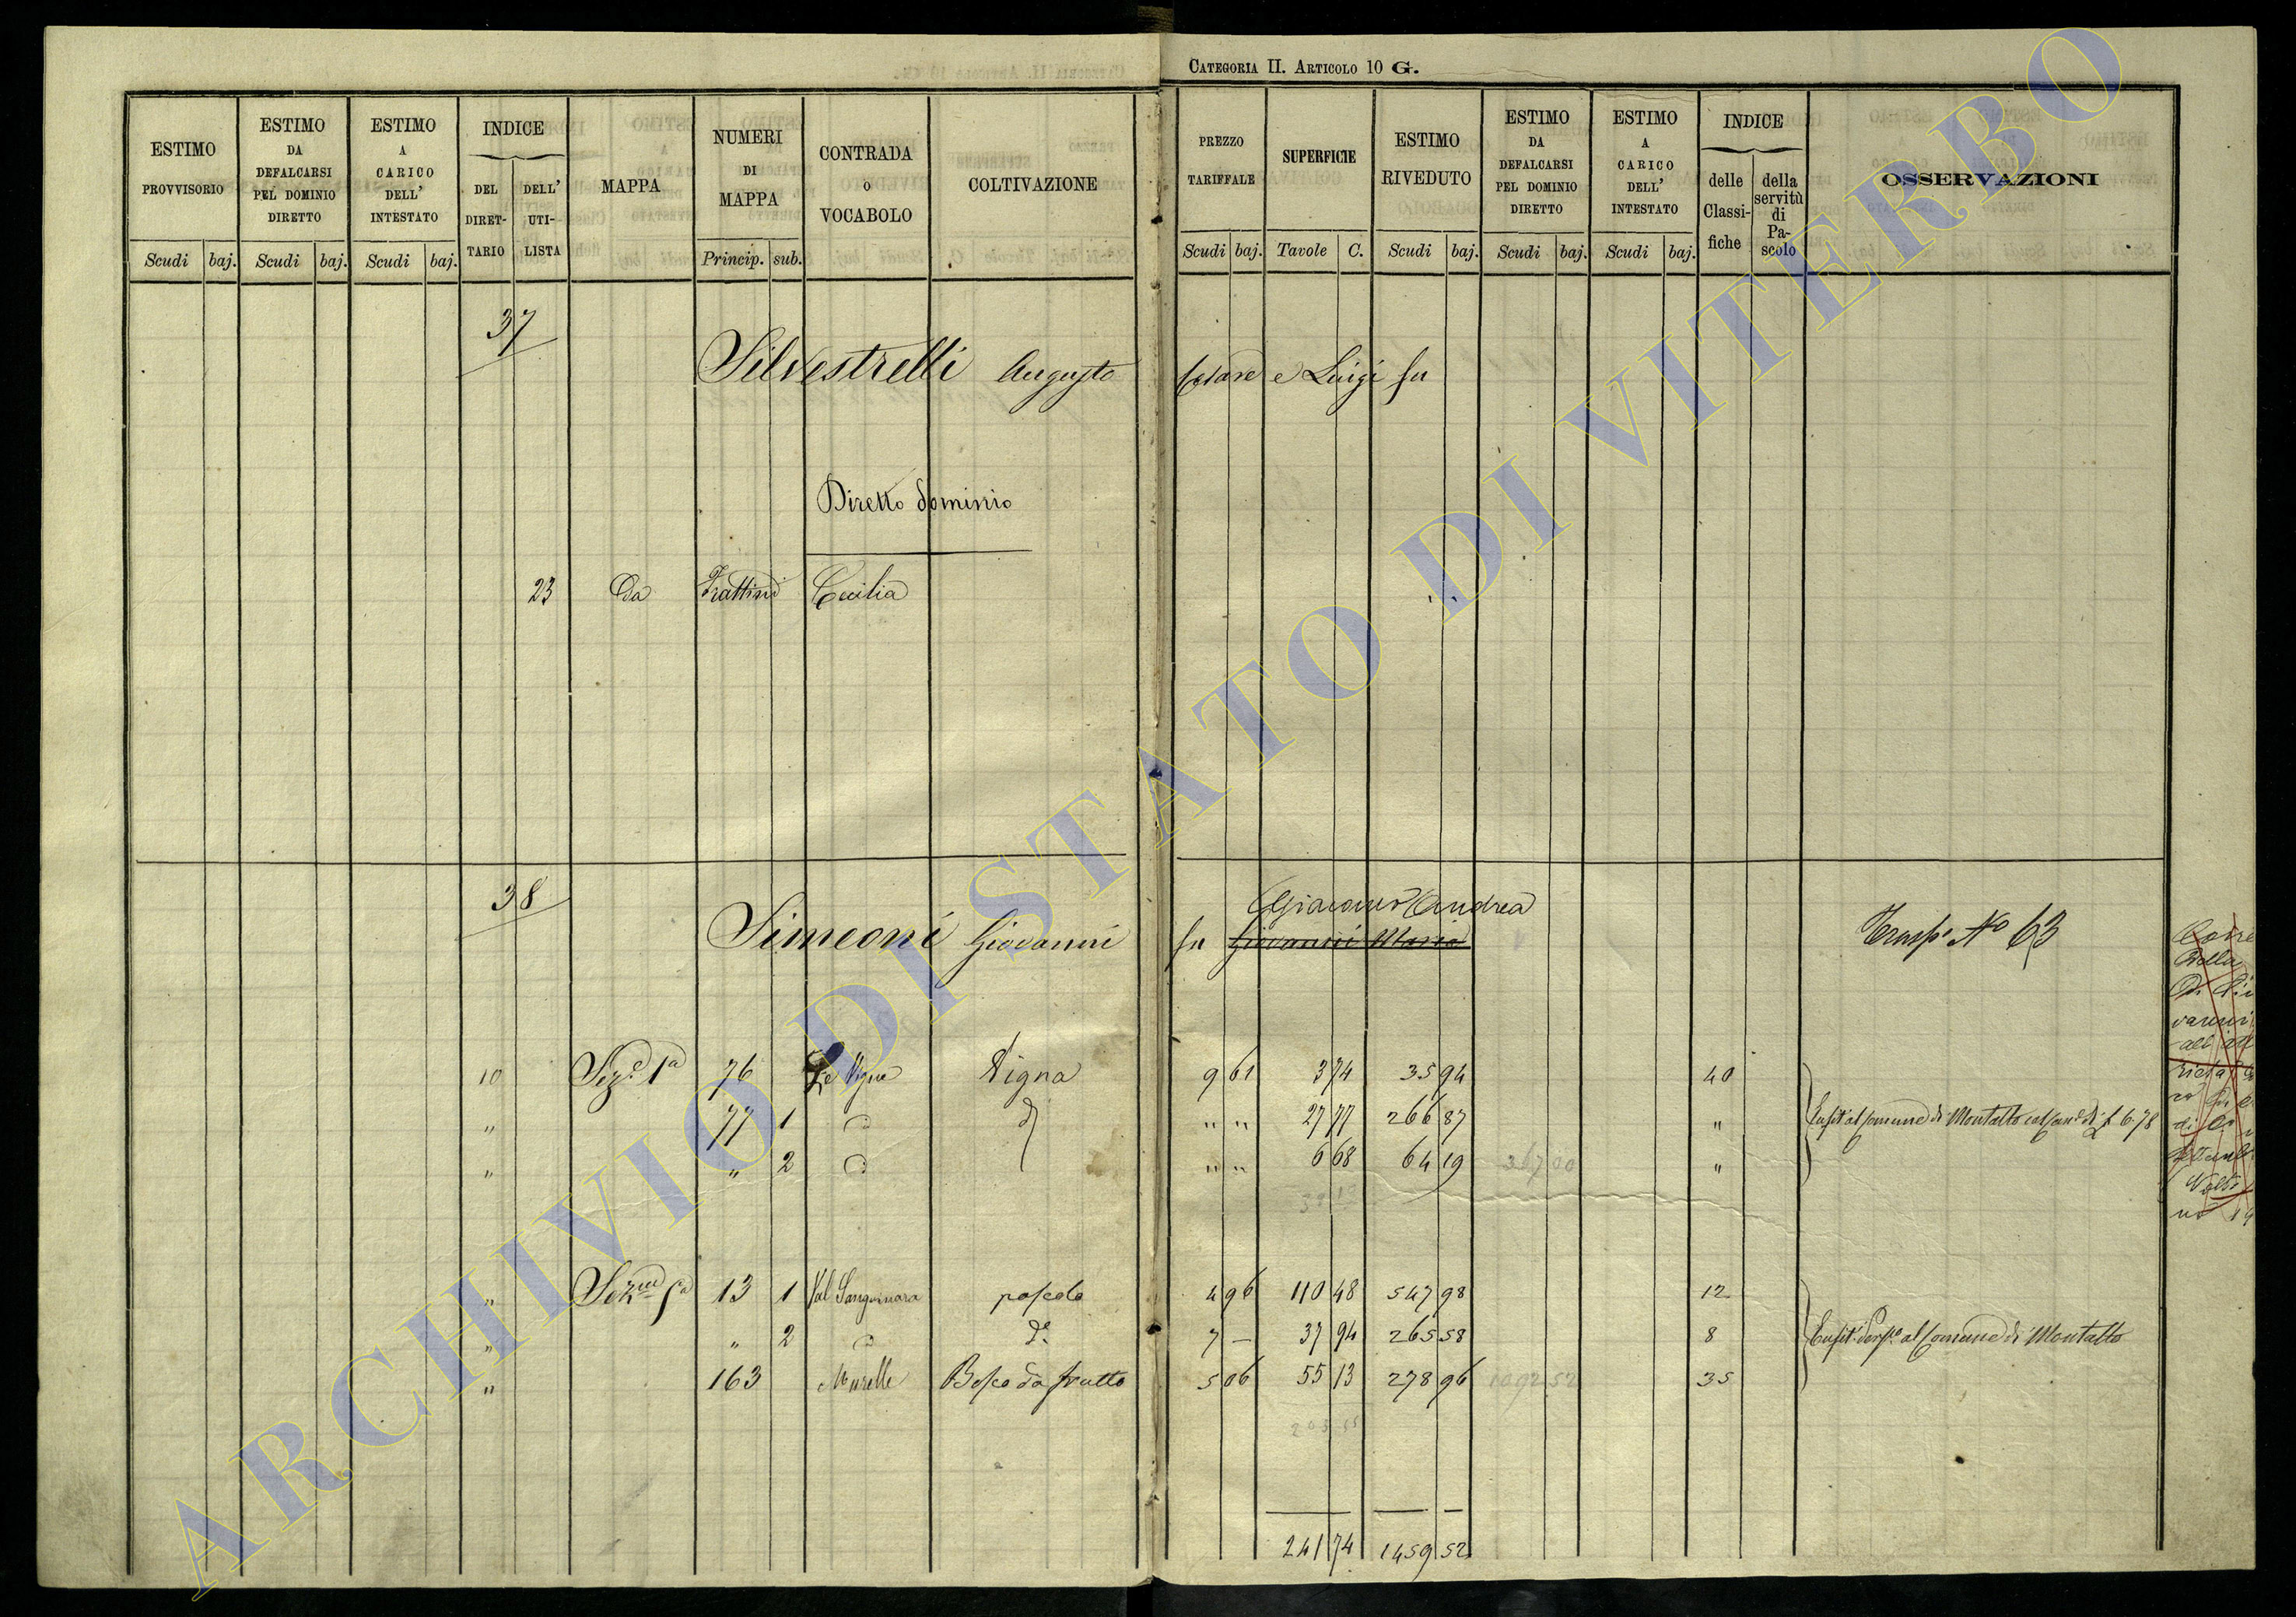 CATEGORIA II. ARTICOLO 10 G.
ESTIMO PROVVISORIO
Scudi baj.
ESTIMO DA DEFALCARSI PEL DOMINIO DIRETTO
Scudi baj.
ESTIMO A CARICO DELL' INTESTATO
Scudi baj.
INDICE
DEL DIRET-TARIO
DELL' UTI-LISTA
MAPPA
NUMERI DI MAPPA
Princip. sub.
CONTRADA O VOCABOLO
COLTIVAZIONE
PREZZO TARIFFALE
Scudi baj.
SUPERFICIE
Tavole C.
ESTIMO RIVEDUTO
Scudi baj.
ESTIMO DA DEFALCARSI PEL DOMINIO DIRETTO
Scudi baj.
ESTIMO A CARICO DELL' INTESTATO
Scudi baj.
INDICE
delle Classi-fiche
della servitù di Pa-scolo
OSSERVAZIONI
37
Silvestrelli Augusto Cesare e Luigi fu
Diretto dominio
23 Da Frattini Cecilia
38
Giacomo Andrea
Simeoni Giovanni fu Giovanni Maria
Trasp. No 63
10 Sez.e 1a 76 Le Vigne Vigna 9 61 3 74 35 94 40
" 77 1 d d " " 27 77 266 87 " Enfit al Comune di Montalto 6.78
" " 2 d " " 6 68 64 19 367 00 "
" Sezne 5a 13 1 Val Sanguinara pascolo 4 96 110 48 547 98 12
" " 2 d do 7 — 37 94 265 58 8 Enfit. Perp. al Comune di Montalto
" 163 Murelle Bosco da frutto 5 06 55 13 278 96 1092 52 35
241 74 1459 52
ARCHIVIO DI STATO DI VITERBO